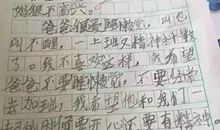 妈很不高兴。
爸爸很爱睡懒觉,叫也
叫不醒,一上班又精神抖擞
了。我不喜欢这样,我希望
爸爸不要睡懒觉,不要
去加班,我希望他和我们一
要有精神